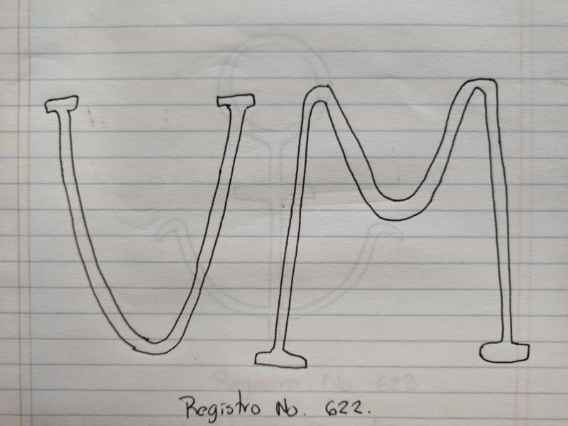 UM
Registro No. 622.